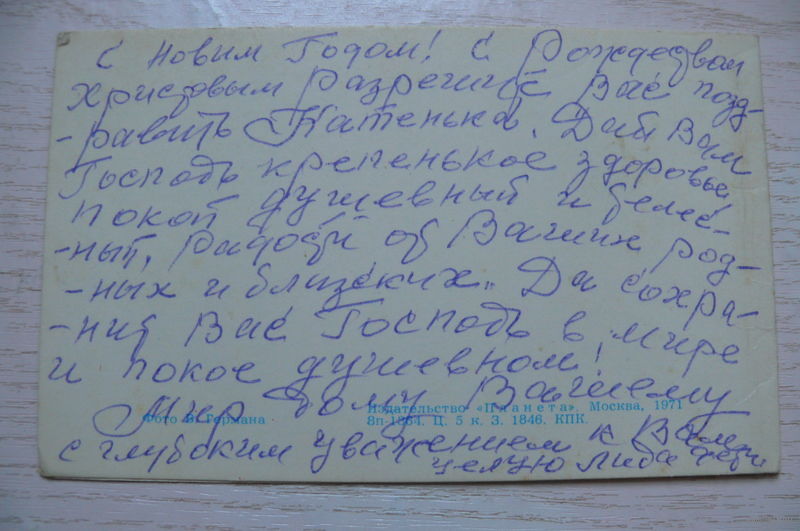 С Новым Годом! С Рождеством
Христовым разрешите Вас позд-
-равить Татенька! Дай Вам
Господь крепенькое здоровье,
покой душевный и телес-
-ный, радости от Ваших род-
-ных и близских. Да сохра-
-нит Вас Господь в мире
и покое душевном!
Мир Дому Вашему
Фото В. Германа
Издательство «Планета». Москва, 1971
8п-1864. Ц. 5 к. З. 1846. КПК.
с глубоким уважением к Вам
целую Люба